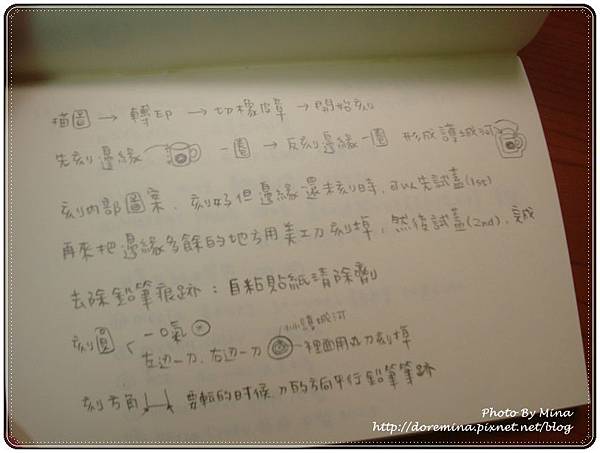 描圖 → 轉印 → 切橡皮章 → 開始刻
先刻邊緣 一圈 → 反刻邊緣一圈 形成護城河
刻內部圖案，刻好但邊緣還未刻時，可以先試蓋(1st)
再來把邊緣多餘的地方用美工刀刻掉，然後試蓋(2nd)，完成
去除鉛筆痕跡：自粘貼紙清除劑
刻圓 一口氣
護城河
左边一刀，右边一刀 裡面用丸刀刻掉
刻方角 要轉的時候，刀的方向平行鉛筆筆跡
Photo By Mina
http://doremina.pixnet.net/blog